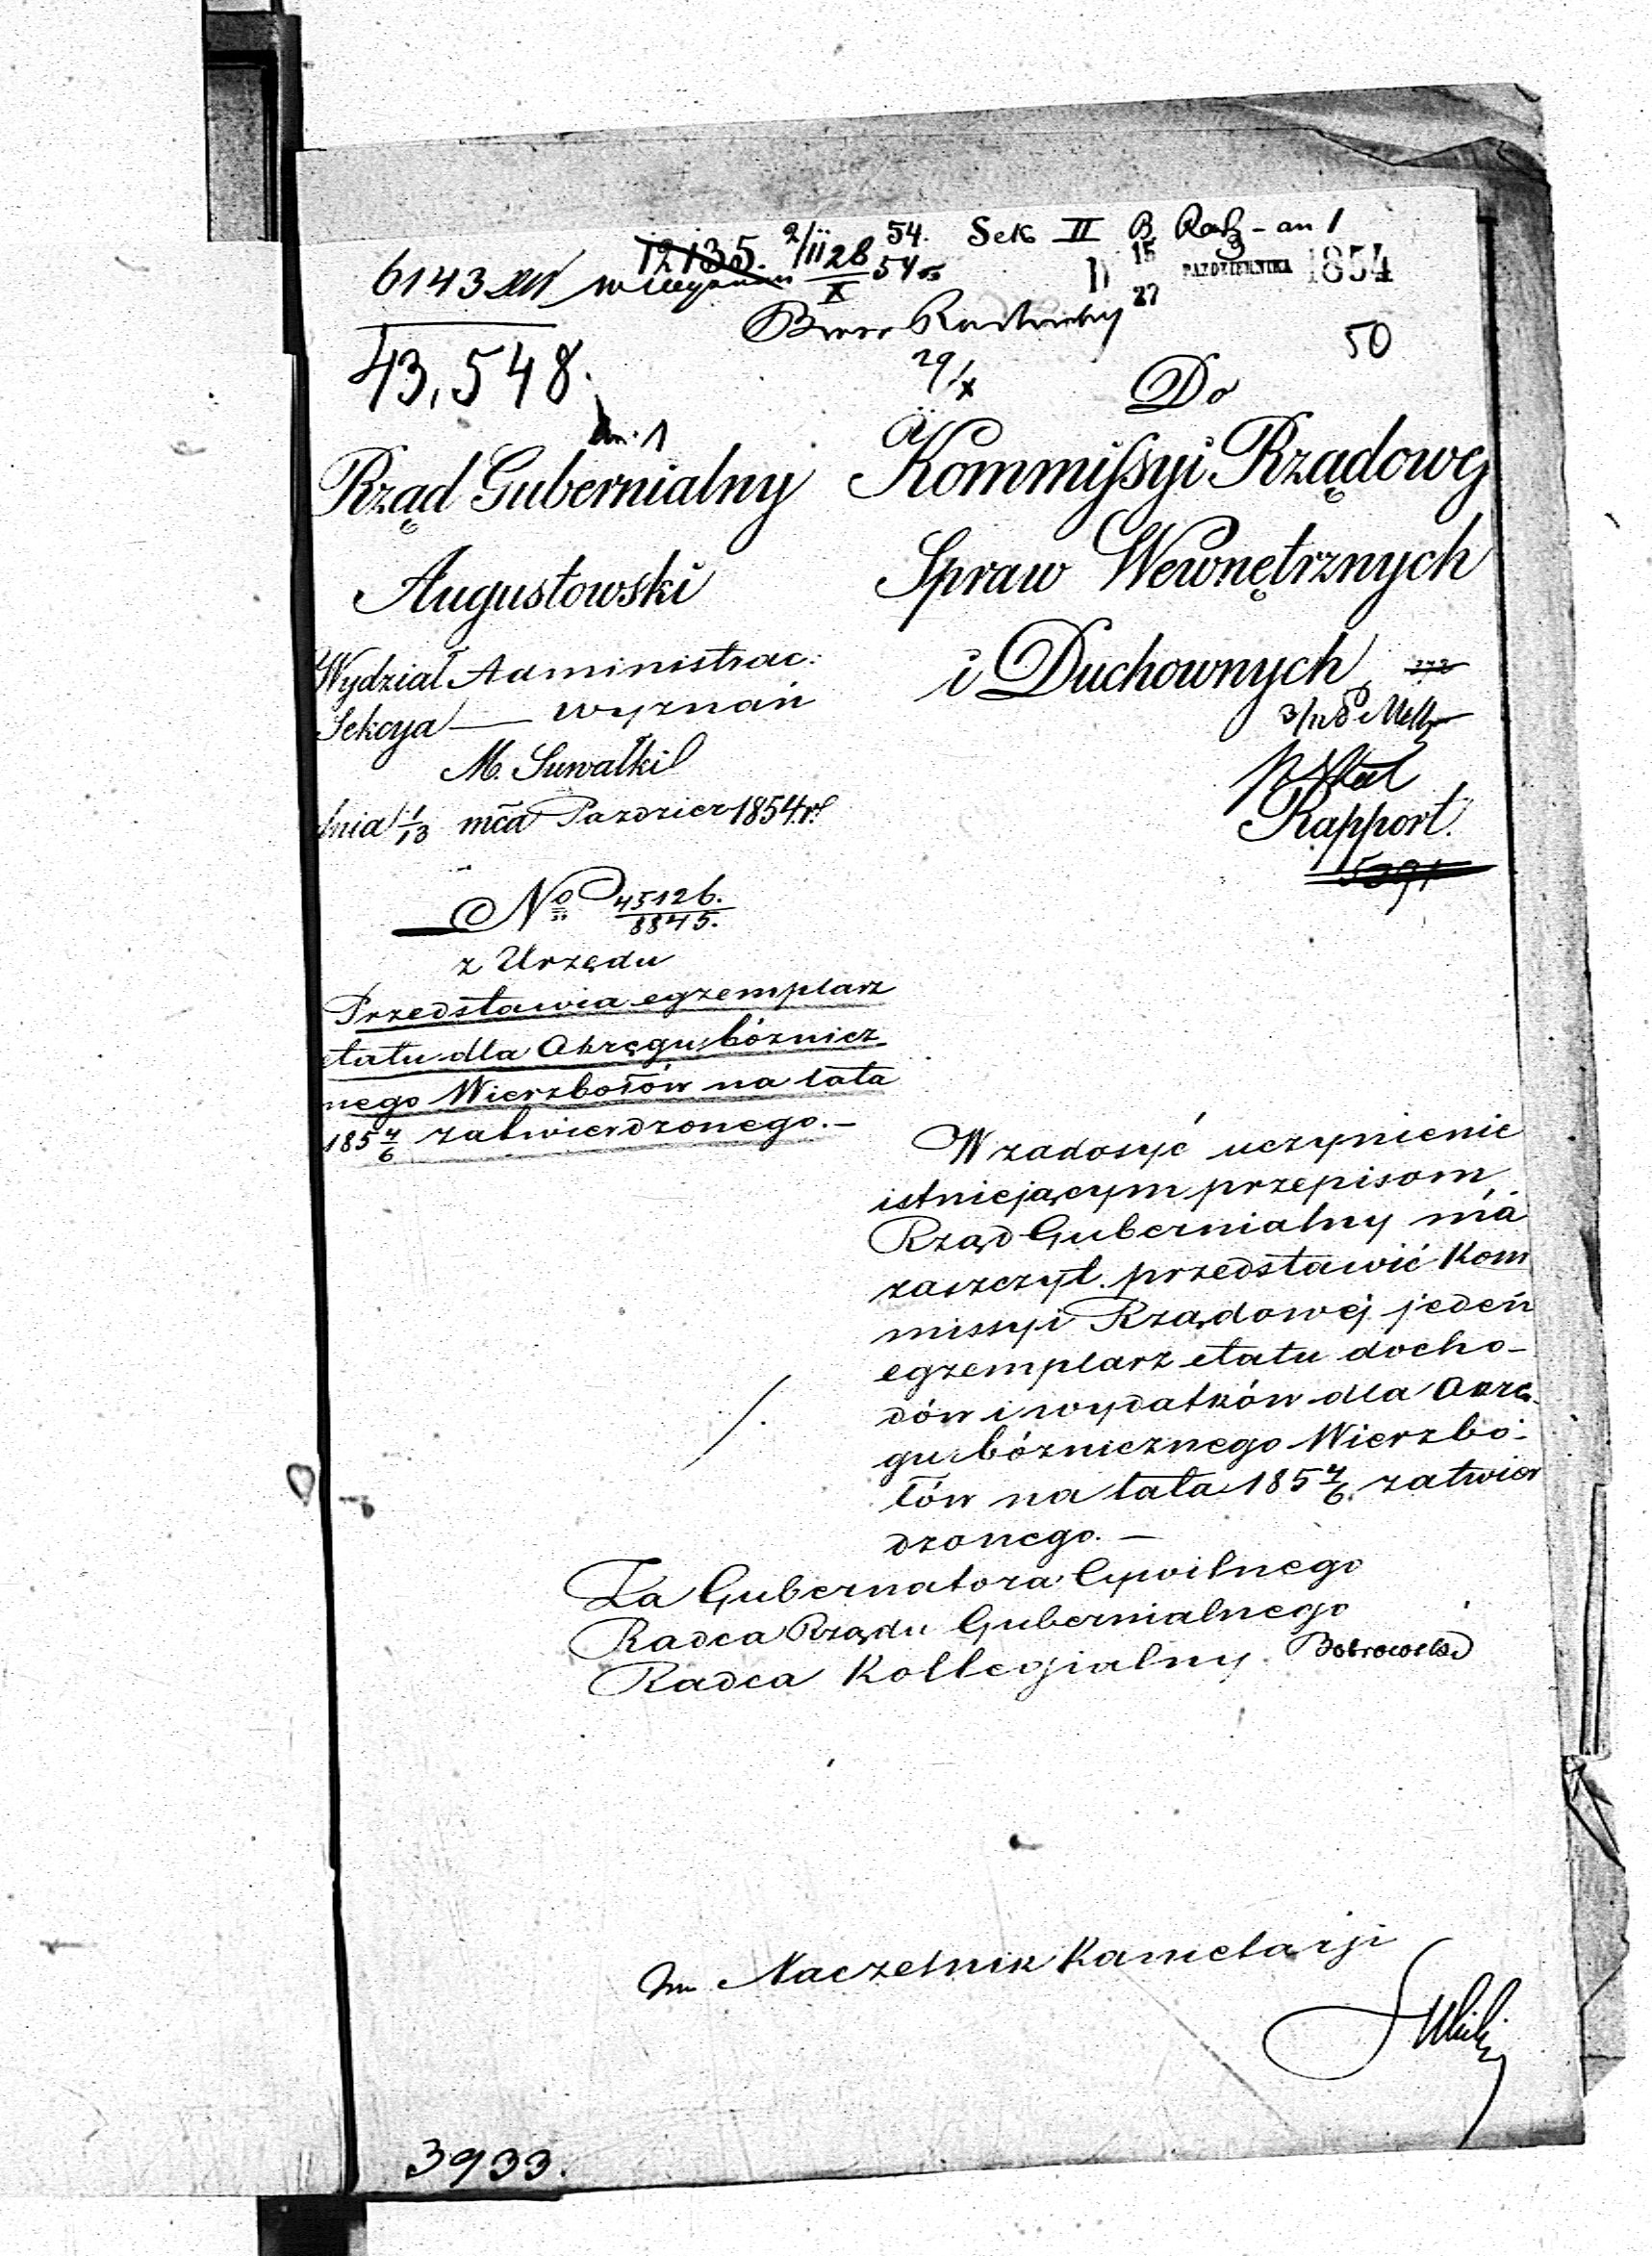 12135. 2/II 54. Sek II B
6143 28/X 54
15/27 PAZDZIERNIKA 1854
43,548.
29/X
50
an. 1
Do
Rząd Gubernialny
Augustowski
Wydział Administrac:
Sekcya — wyznań
M. Suwałki
dnia 1/13 mca Paździer 1854 r.
No 45126./8845.
z Urzędu
Przedstawia egzemplarz
etatu dla Okręgu bóżnicz
nego Wierzbołów na lata
185 4/6 zatwierdzonego. —
Kommissyi Rządowej
Spraw Wewnętrznych
i Duchownych
Rapport.
W zadosyć uczynienie
istniejącym przepisom
Rząd Gubernialny má
zaszczyt przedstawić Kom
missyi Rządowej jeden
egzemplarz etatu docho-
dów i wydatków dla Okrę-
gu bóżnicznego Wierzbo-
łów na lata 185 4/6 zatwier
dzonego. —
Za Gubernatora Cywilnego
Radca Rządu Gubernialnego
Radca Kollegialny Dobrowolski
Naczelnik Kancelaryi
3933.